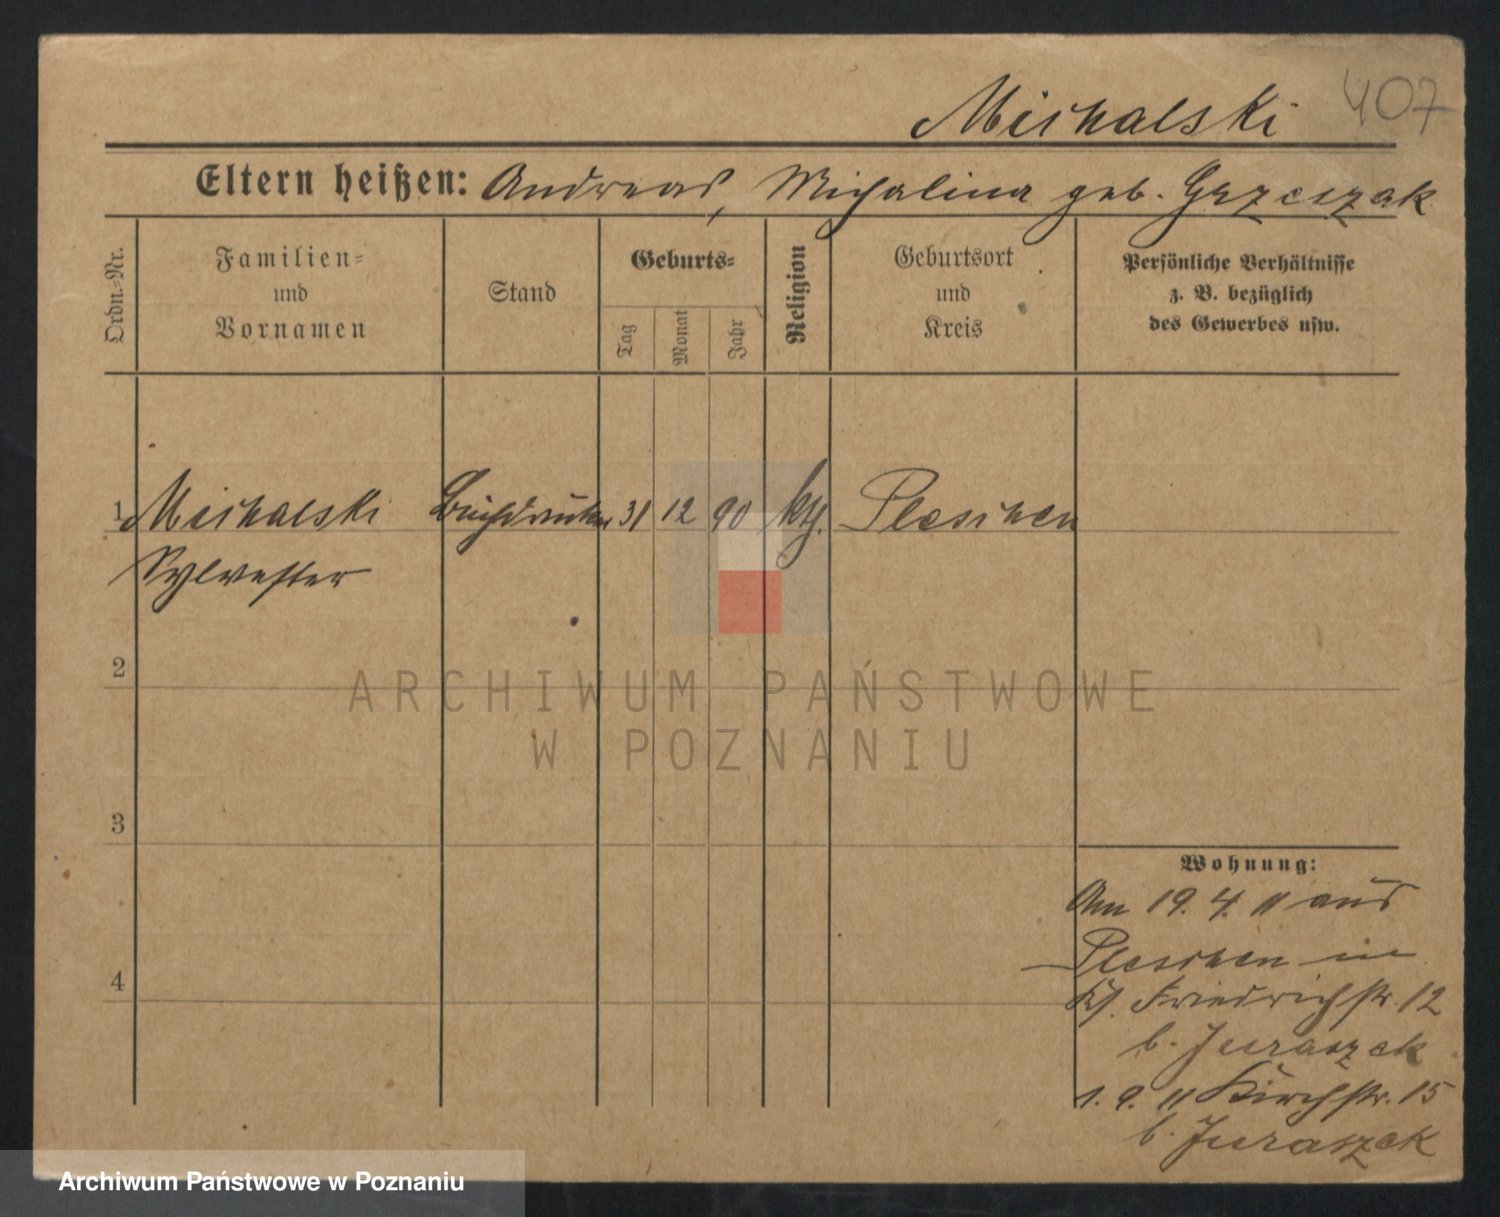 Michalski 407
Eltern heißen: Andreas, Michalina geb. Grzeszak
Ordn.-Nr.
Familien-
und
Vornamen
Stand
Geburts-
Tag
Monat
Jahr
Religion
Geburtsort
und
Kreis
Persönliche Verhältnisse
z. B. bezüglich
des Gewerbes usw.
1 Michalski Buchdrucker 31 12 90 kth. Pleschen
Sylvester
2
3
4
Wohnung:
Am 19. 4. 11 aus
Pleschen in
Friedrichstr. 12
b. Juraszek
1. 9. 11 Kirchstr. 15
b. Juraszek
ARCHIWUM PAŃSTWOWE
W POZNANIU
Archiwum Państwowe w Poznaniu